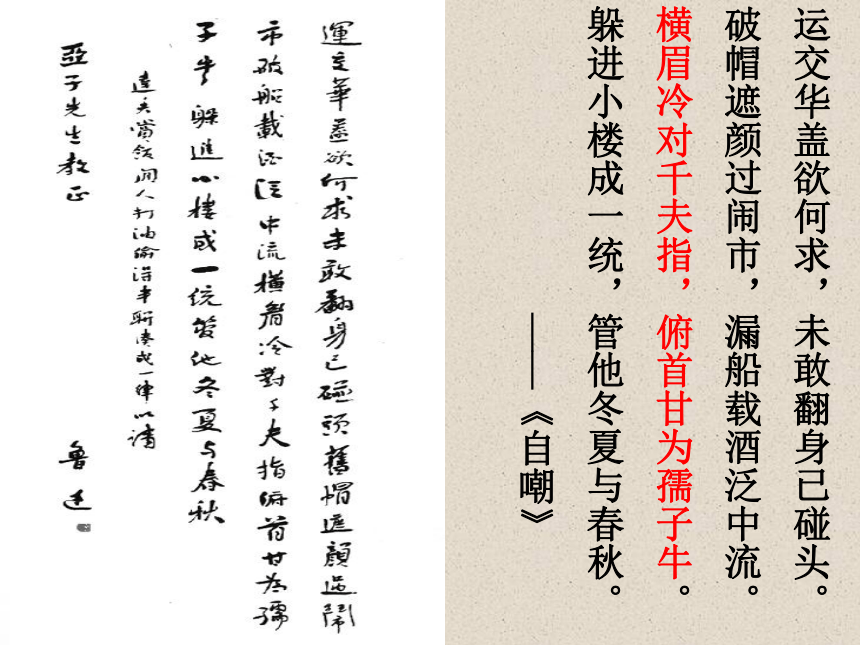 运交华盖欲何求，未敢翻身己碰头。
破帽遮颜过闹市，漏船载酒泛中流。
横眉冷对千夫指，俯首甘为孺子牛。
躲进小楼成一统，管他冬夏与春秋。
——《自嘲》
運交華蓋欲何求未敢翻身已碰頭舊帽遮顏過鬧
市破船載酒泛中流橫眉冷對千夫指俯首甘為孺
子牛躲進小樓成一統管他冬夏与春秋
達夫賞飯閑人打油偷得半聯湊成一律以請
亞子先生教正 魯迅